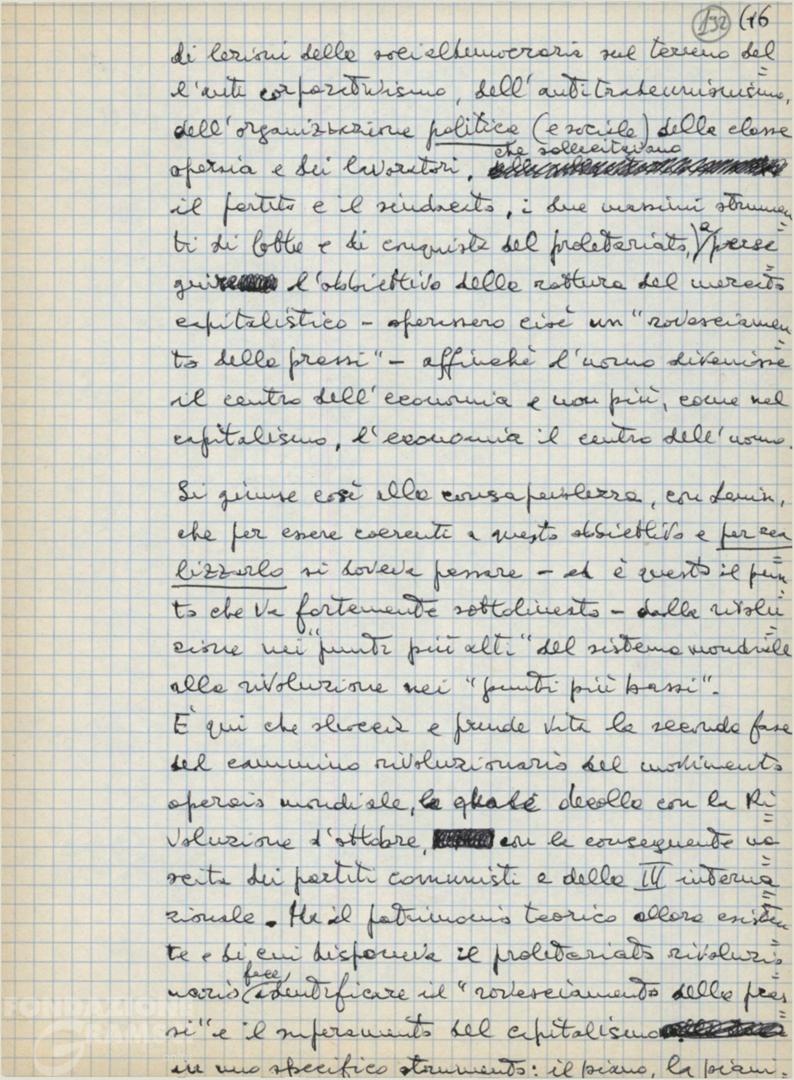 192 (16
di lezioni della socialdemocrazia sul terreno del
l'anti corporativismo, dell'antitradeunionismo,
dell'organizzazione politica (e sociale) della classe
che sollecitavano
operaia e dei lavoratori,
il partito e il sindacato, i due massimi strumen
ti di lotte e di conquista del proletariato, a perse
guire l'obbiettivo della rottura del mercato
capitalistico - operassero cioè un "rovesciamen
to della prassi" - affinché l'uomo divenisse
il centro dell'economia e non più, come nel
capitalismo, l'economia il centro dell'uomo.
Si giunse così alla consapevolezza, con Lenin,
che per essere coerenti a questo obbiettivo e per rea
lizzarlo si doveva passare - ed è questo il pun
to che va fortemente sottolineato - dalla rivolu
zione nei "punti più alti" del sistema mondiale
alla rivoluzione nei "punti più bassi".
È qui che sboccia e prende vita la seconda fase
del cammino rivoluzionario del movimento
operaio mondiale, la quale decolla con la Ri
voluzione d'ottobre, con la conseguente na
scita dei partiti comunisti e della III interna
zionale. Ma il patrimonio teorico allora esisten
te e di cui disponeva il proletariato rivoluzio
fece
nario identificare il "rovesciamento della pras
si" e il superamento del capitalismo
in uno specifico strumento: il piano, la piani-
FONDAZIONE
GRAMSCI